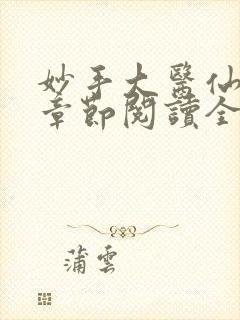 妙手大醫仙
章節閱讀全
蒲雲